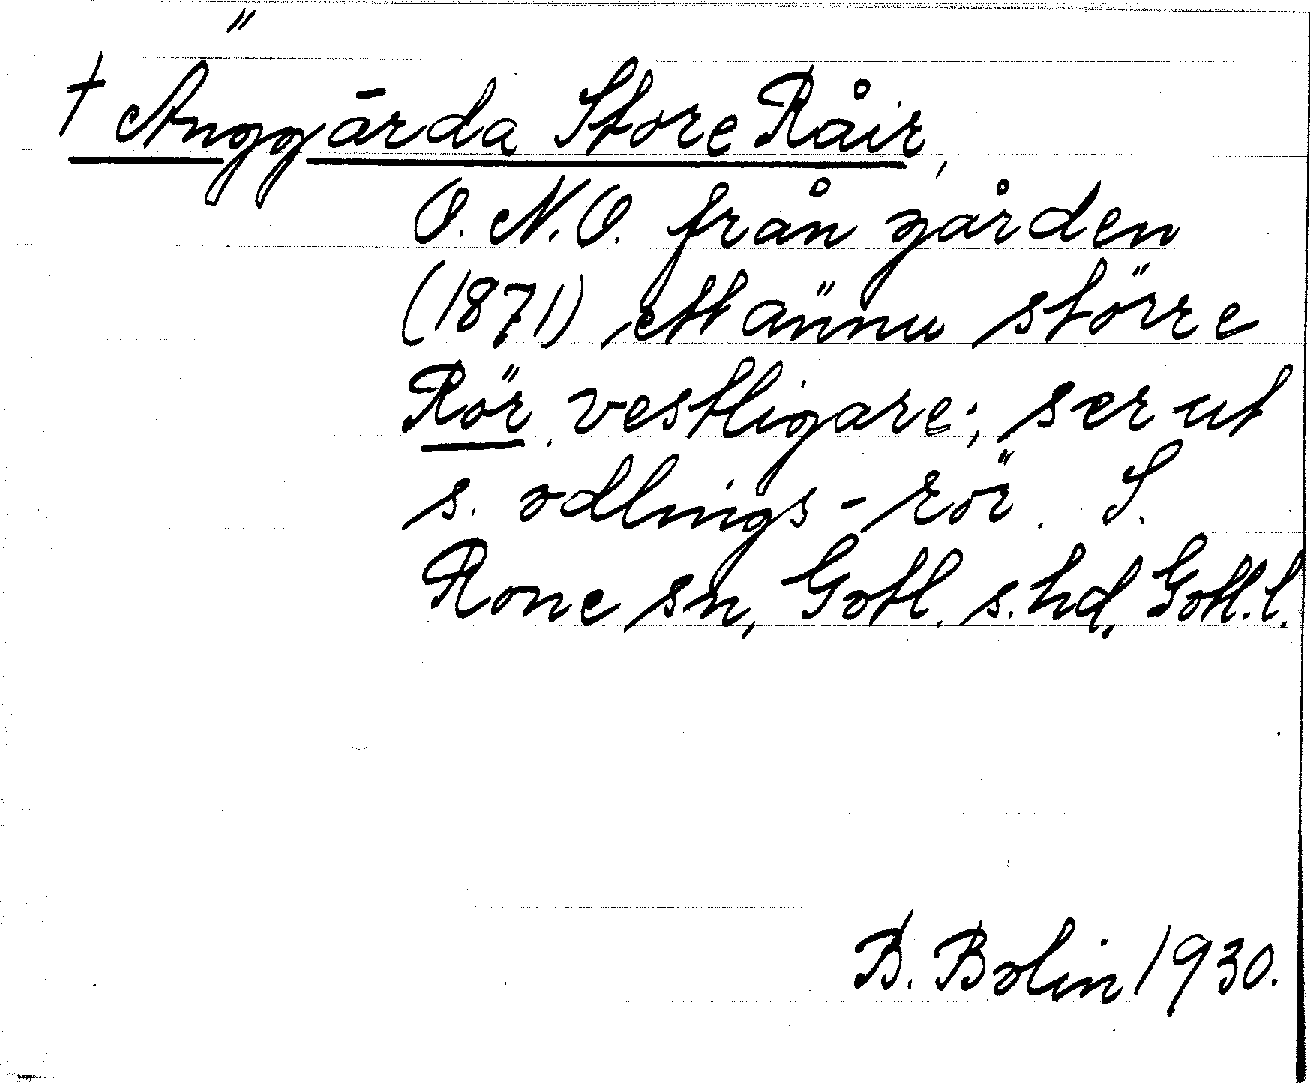 † Änggārda Store Råir,
O. N. O. från gården
(1871) ett ännu större
Rör vestligare; ser ut
s. odlings-rör. S.
Rone sn, Gotl. s. hd, Gotl. l.
B. Bolin 1930.